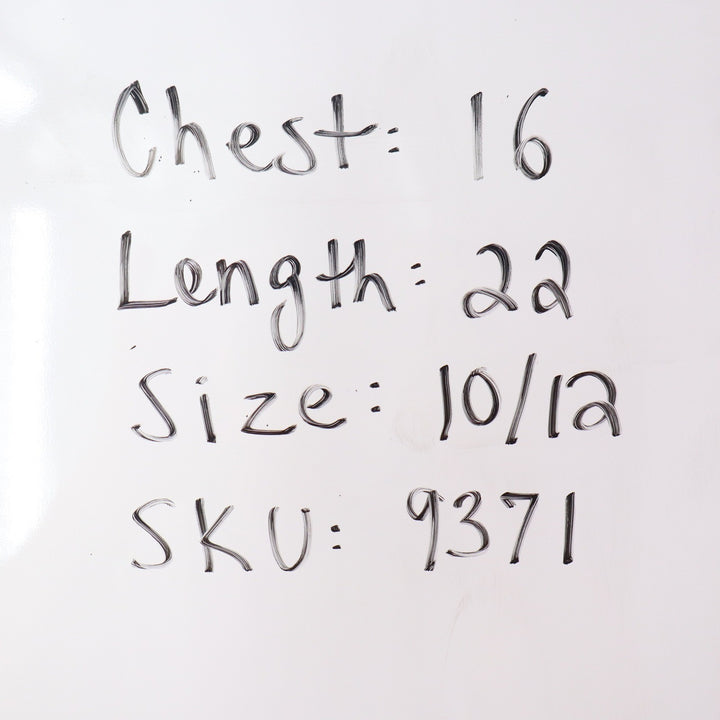 Chest: 16
Length: 22
Size: 10/12
SKU: 9371